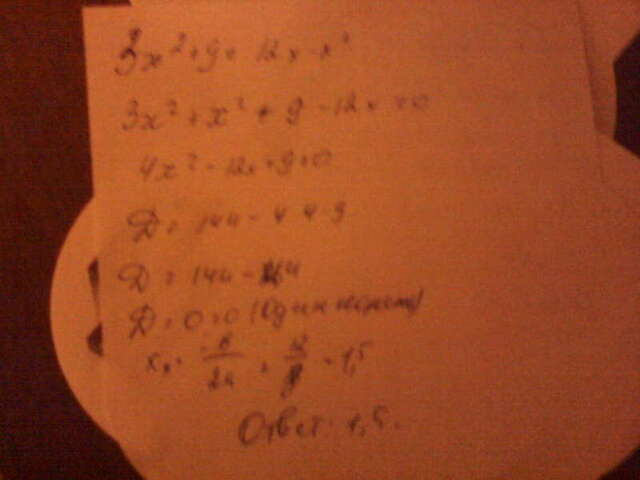 3x²+9=12x-x²
3x²+x²+9-12x=0
4x²-12x+9=0
D=144-4·4·9
D=144-144
D=0=0 (один корень)
x₁=-b/2a=12/8=1,5
Ответ: 1,5.